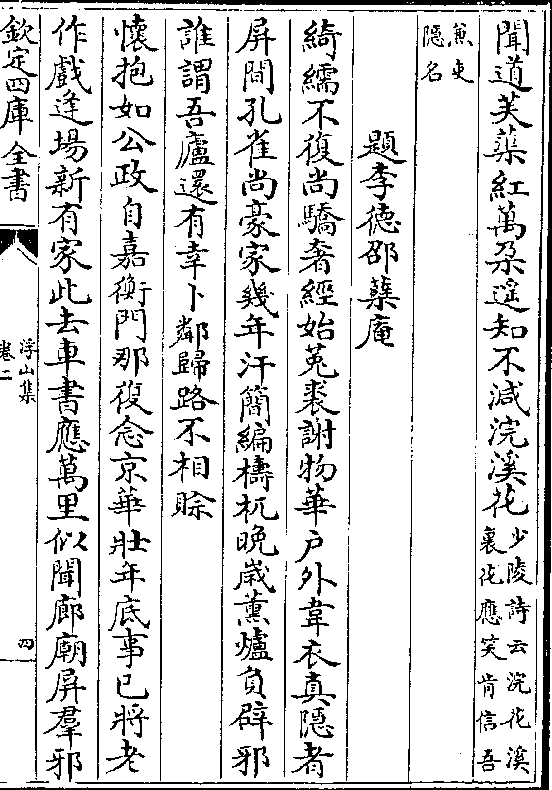 聞道芙蕖紅萬朶遥知不減浣溪花少陵詩云浣花溪
裏花應笑肯信吾
兼吏
隱名
題李德邵蘂庵
綺繻不復尚驕奢經始菟裘謝物華户外韋衣真隱者
屏間孔雀尚豪家幾年汗簡編檮杌晩嵗薰爐負辟邪
誰謂吾廬還有幸卜鄰歸路不相賒
懷抱如公政自嘉衡門那復念京華壯年底事已將老
作戲逢場新有家此去車書應萬里似聞廊廟屏羣邪
欽定四庫全書
浮山集
卷二
四